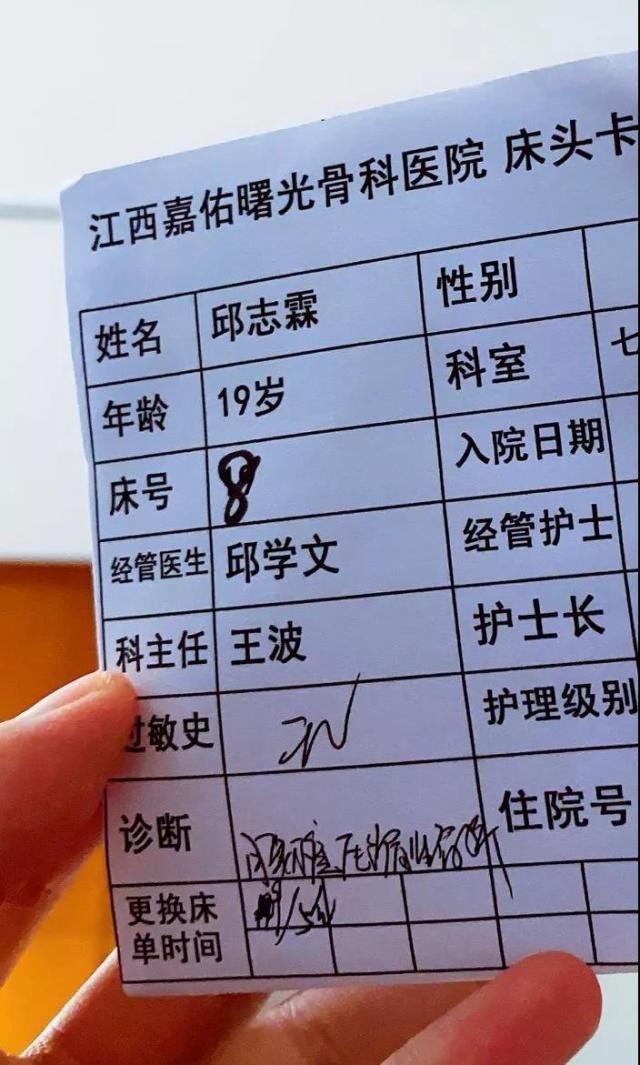 江西嘉佑曙光骨科医院 床头卡
姓名 邱志霖 性别
年龄 19岁 科室 七
床号 8 入院日期
经管医生 邱学文 经管护士
科主任 王波 护士长
过敏史 护理级别
诊断 住院号
更换床
单时间